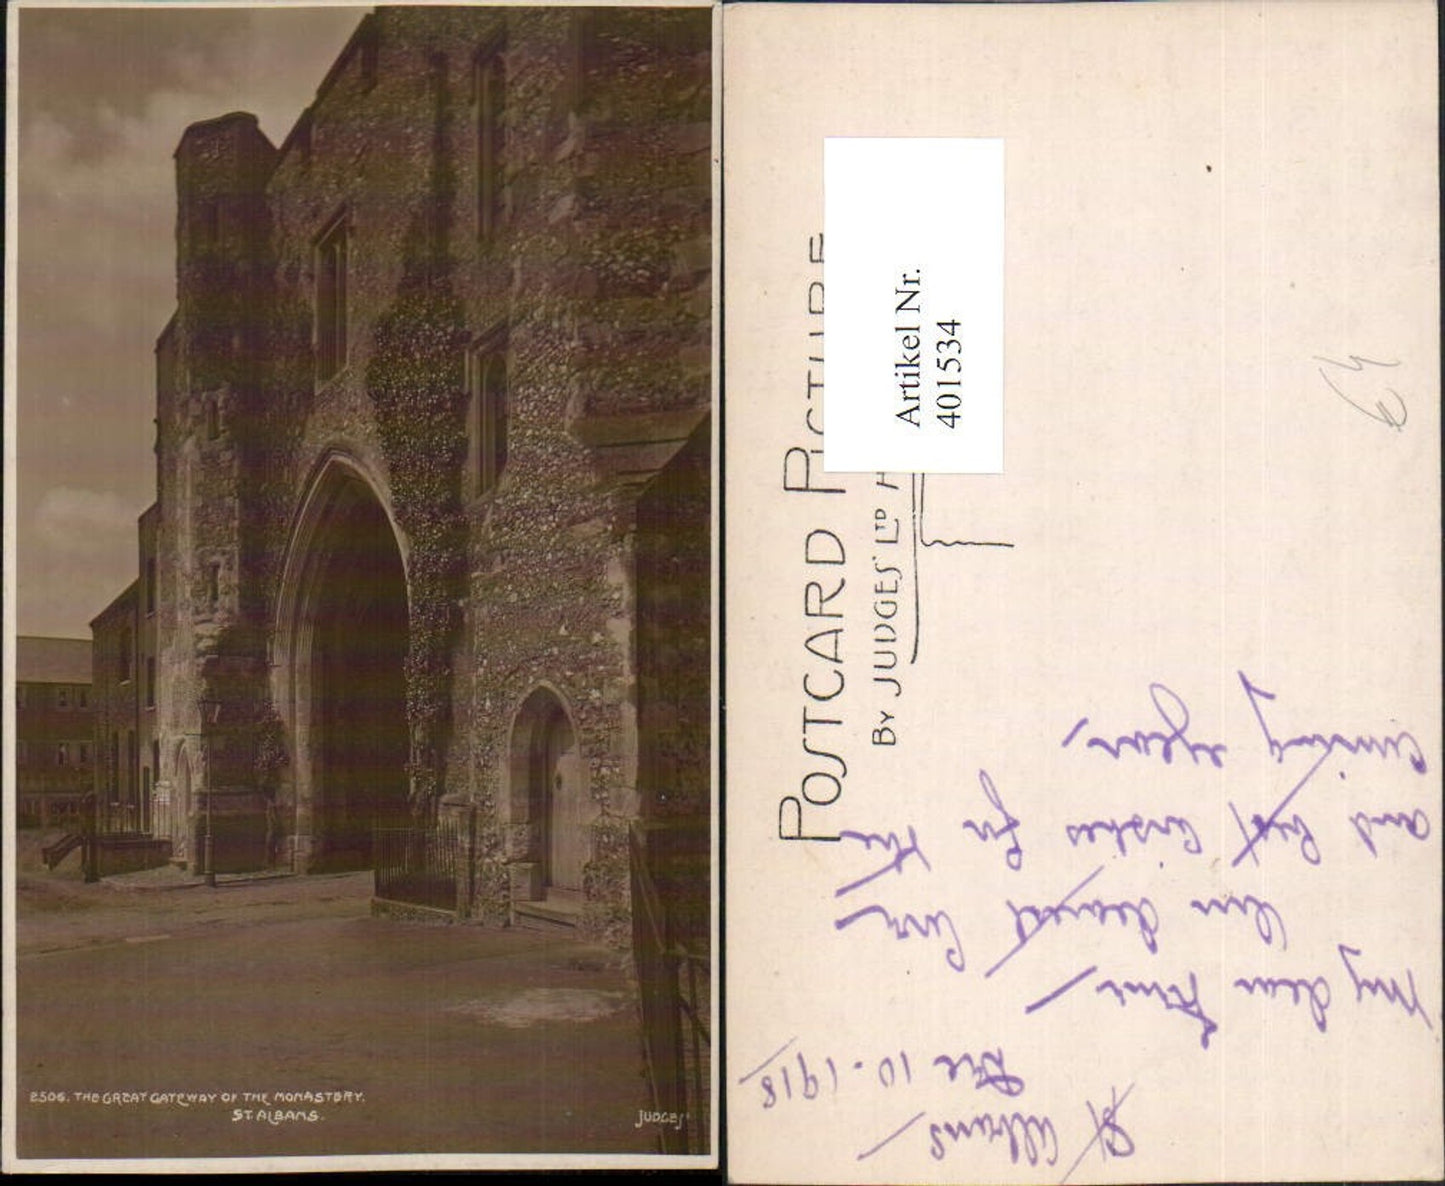 2506. THE GREAT GATEWAY OF THE MONASTERY.
ST. ALBANS.
JUDGES'
POSTCARD PICTURE
BY JUDGES' LTD H
Artikel Nr.
401534
St Albans
Dec 10. 1918
My dear
Our dearest love
and best wishes for the
coming year,